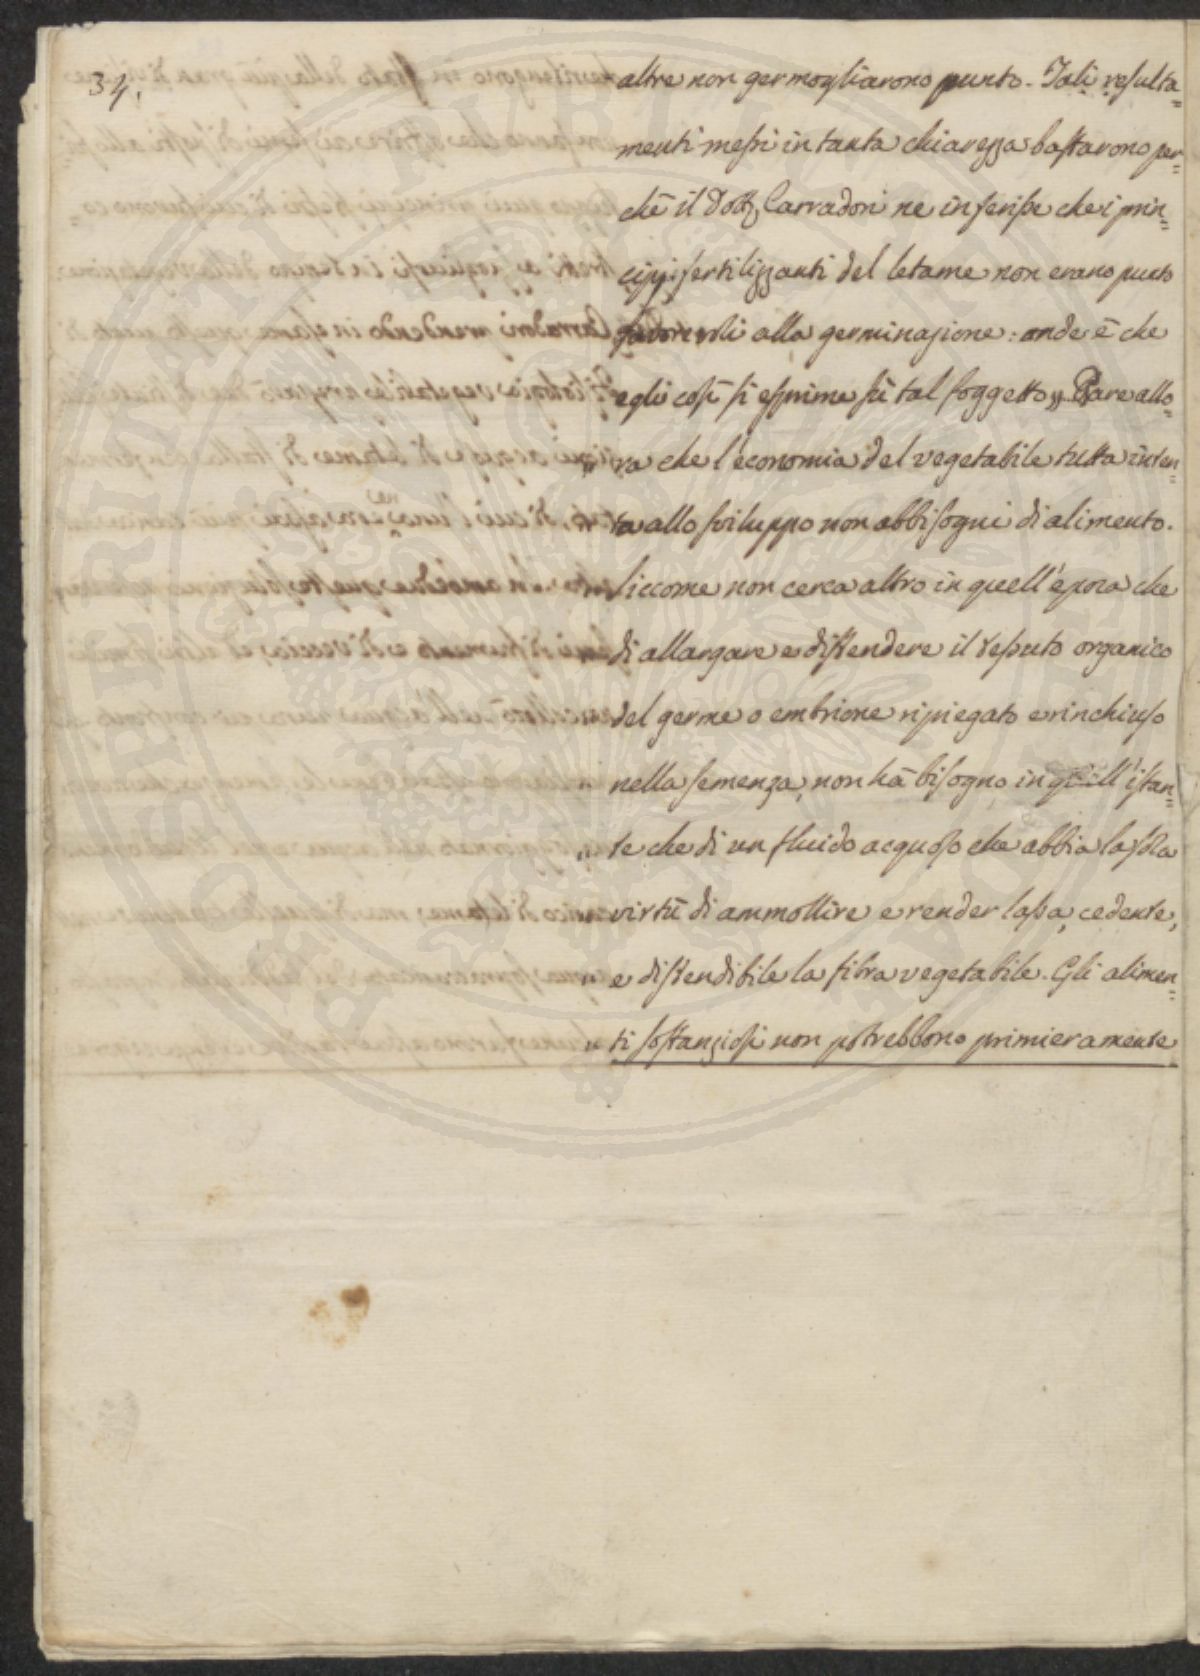 34.
altre non germogliarono punto. Tali resulta=
menti messi in tanta chiarezza bastarono per=
chè il Dott. Carradori ne inferisse che i prin=
cipj fertilizzanti del letame non erano punto
favorevoli alla germinazione: onde è che
egli così si esprime sù tal soggetto „ Pare allo=
„ ra che l'economia del vegetabile tutta inten=
„ ta allo sviluppo non abbisogni di alimento.
„ siccome non cerca altro in quell'epoca che
„ di allargare e distendere il tessuto organico
„ del germe o embrione ripiegato e rinchiuso
„ nella semenza, non hà bisogno in quell'istan=
„ te che di un fluido acquoso che abbia la sola
„ virtù di ammollire e render lassa, cedente,
„ e distendibile la fibra vegetabile. Gli alimen=
„ ti sostanziosi non potrebbono primieramente